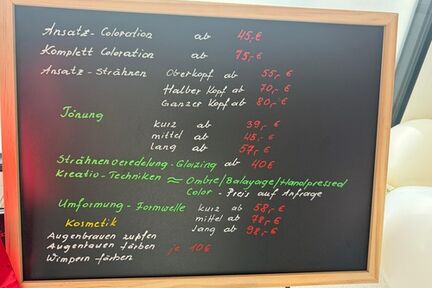 Ansatz-Coloration ab 45,-€
Komplett Coloration ab 75,-€
Ansatz-Strähnen Oberkopf ab 55,-€
Halber Kopf ab 70,-€
Ganzer Kopf ab 80,-€
Tönung
kurz ab 39,-€
mittel ab 48,-€
lang ab 57,-€
Strähnenveredelung-Glaizing ab 40€
Kreativ-Techniken ≈ Ombre/Balayage/Handpressed
Color - Preis auf Anfrage
Umformung-Formwelle kurz ab 58,-€
mittel ab 78,-€
lang ab 98,-€
Kosmetik
Augenbrauen zupfen
Augenbauen färben je 10€
Wimpern färben